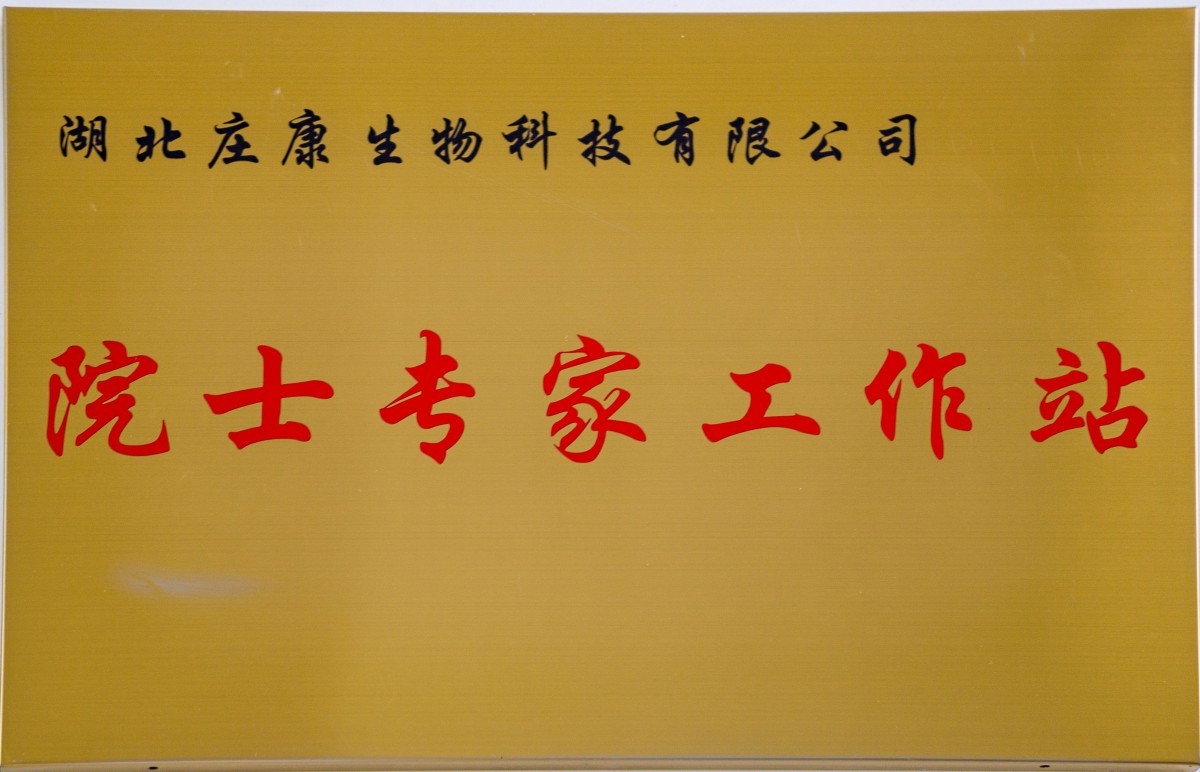 湖北庄康生物科技有限公司
院士专家工作站